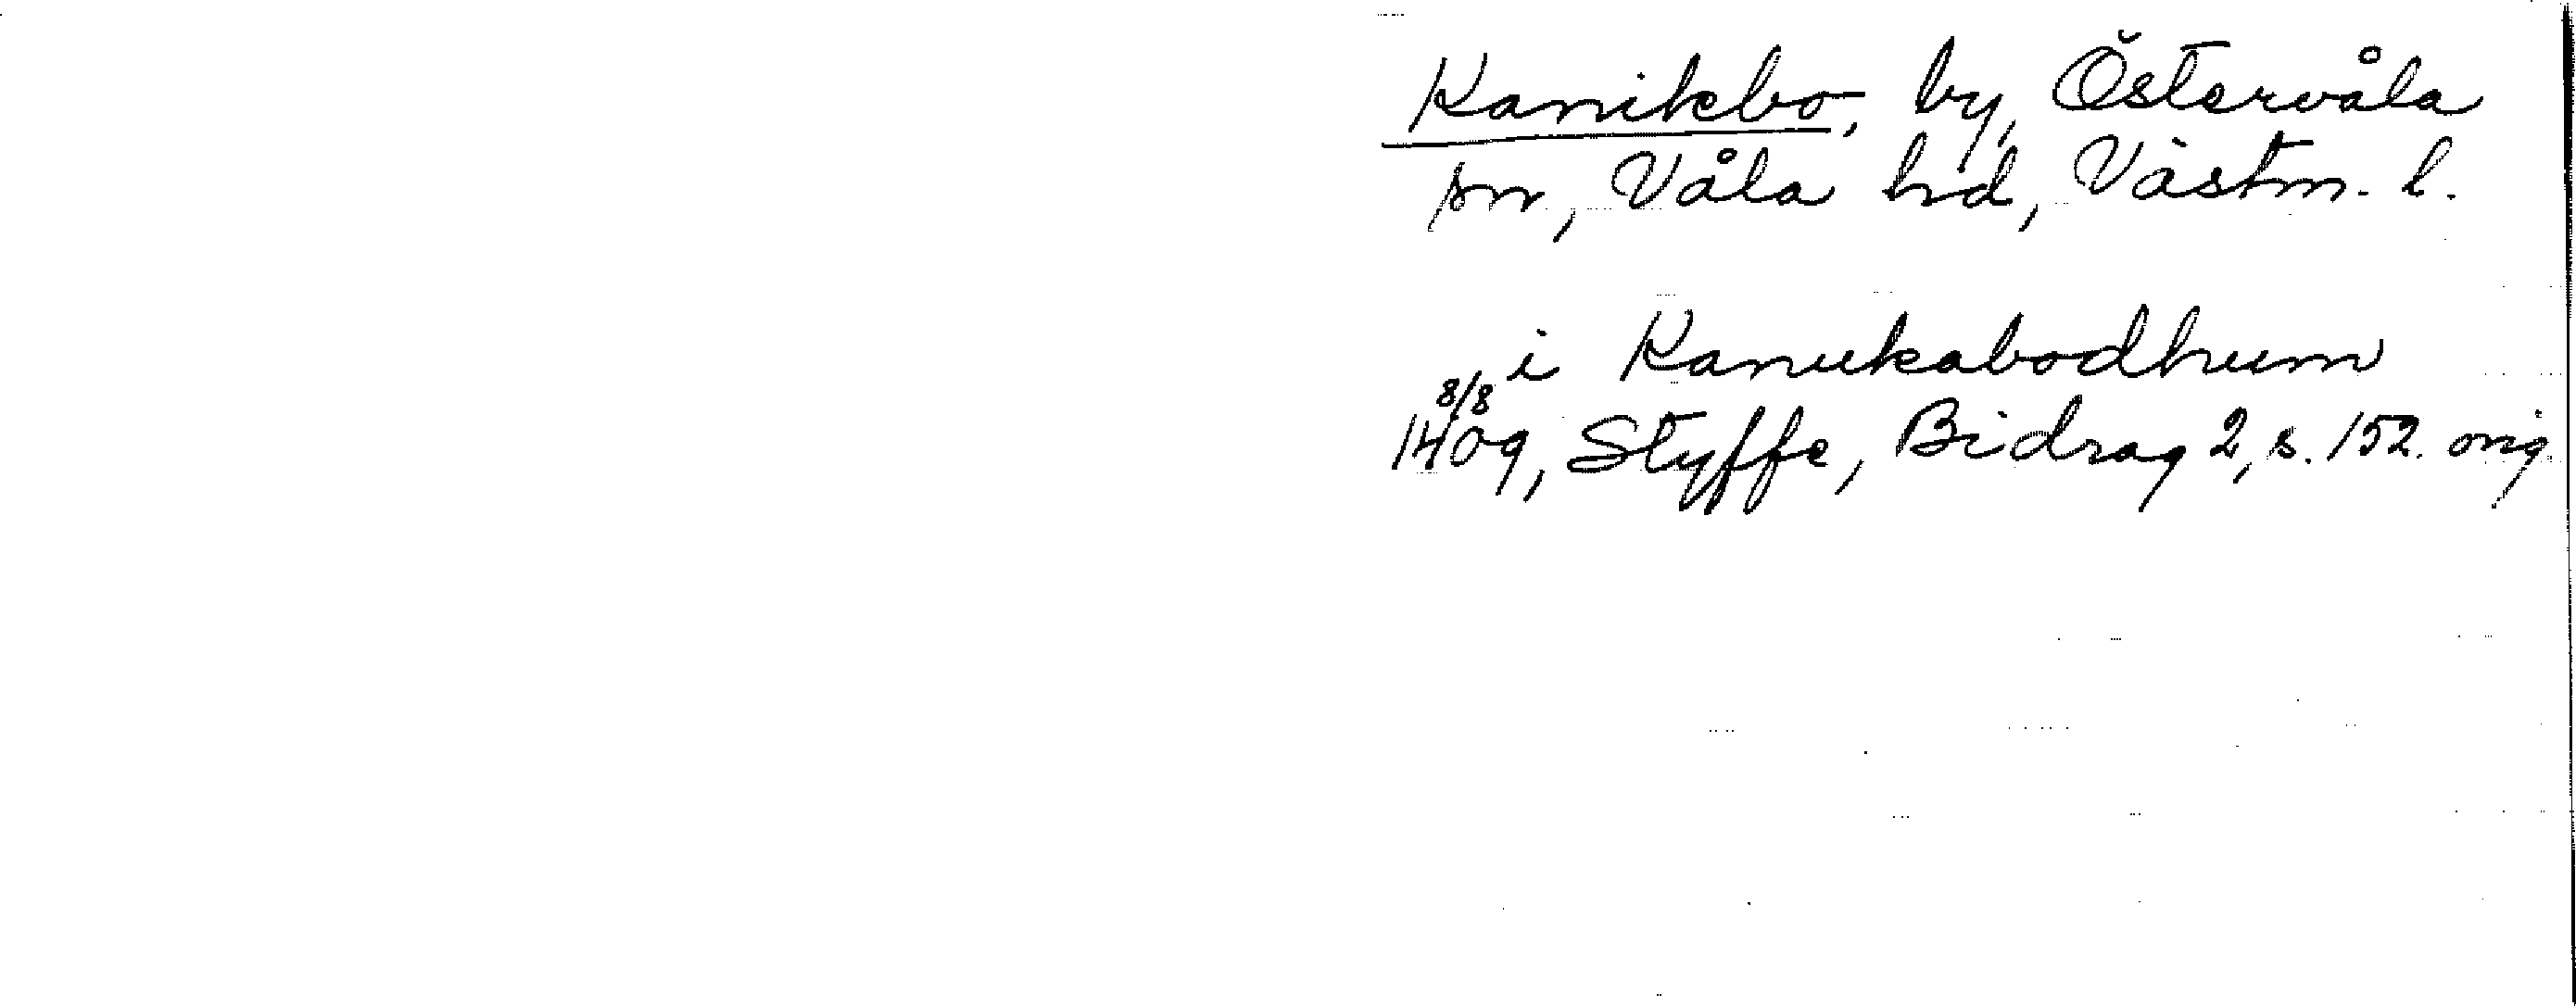 Kanikbo, by, Östervåla
sn, Våla hd, Västm. l.
i Kanukabodhum
8/8
1409, Styffe, Bidrag 2, s. 152. orig.